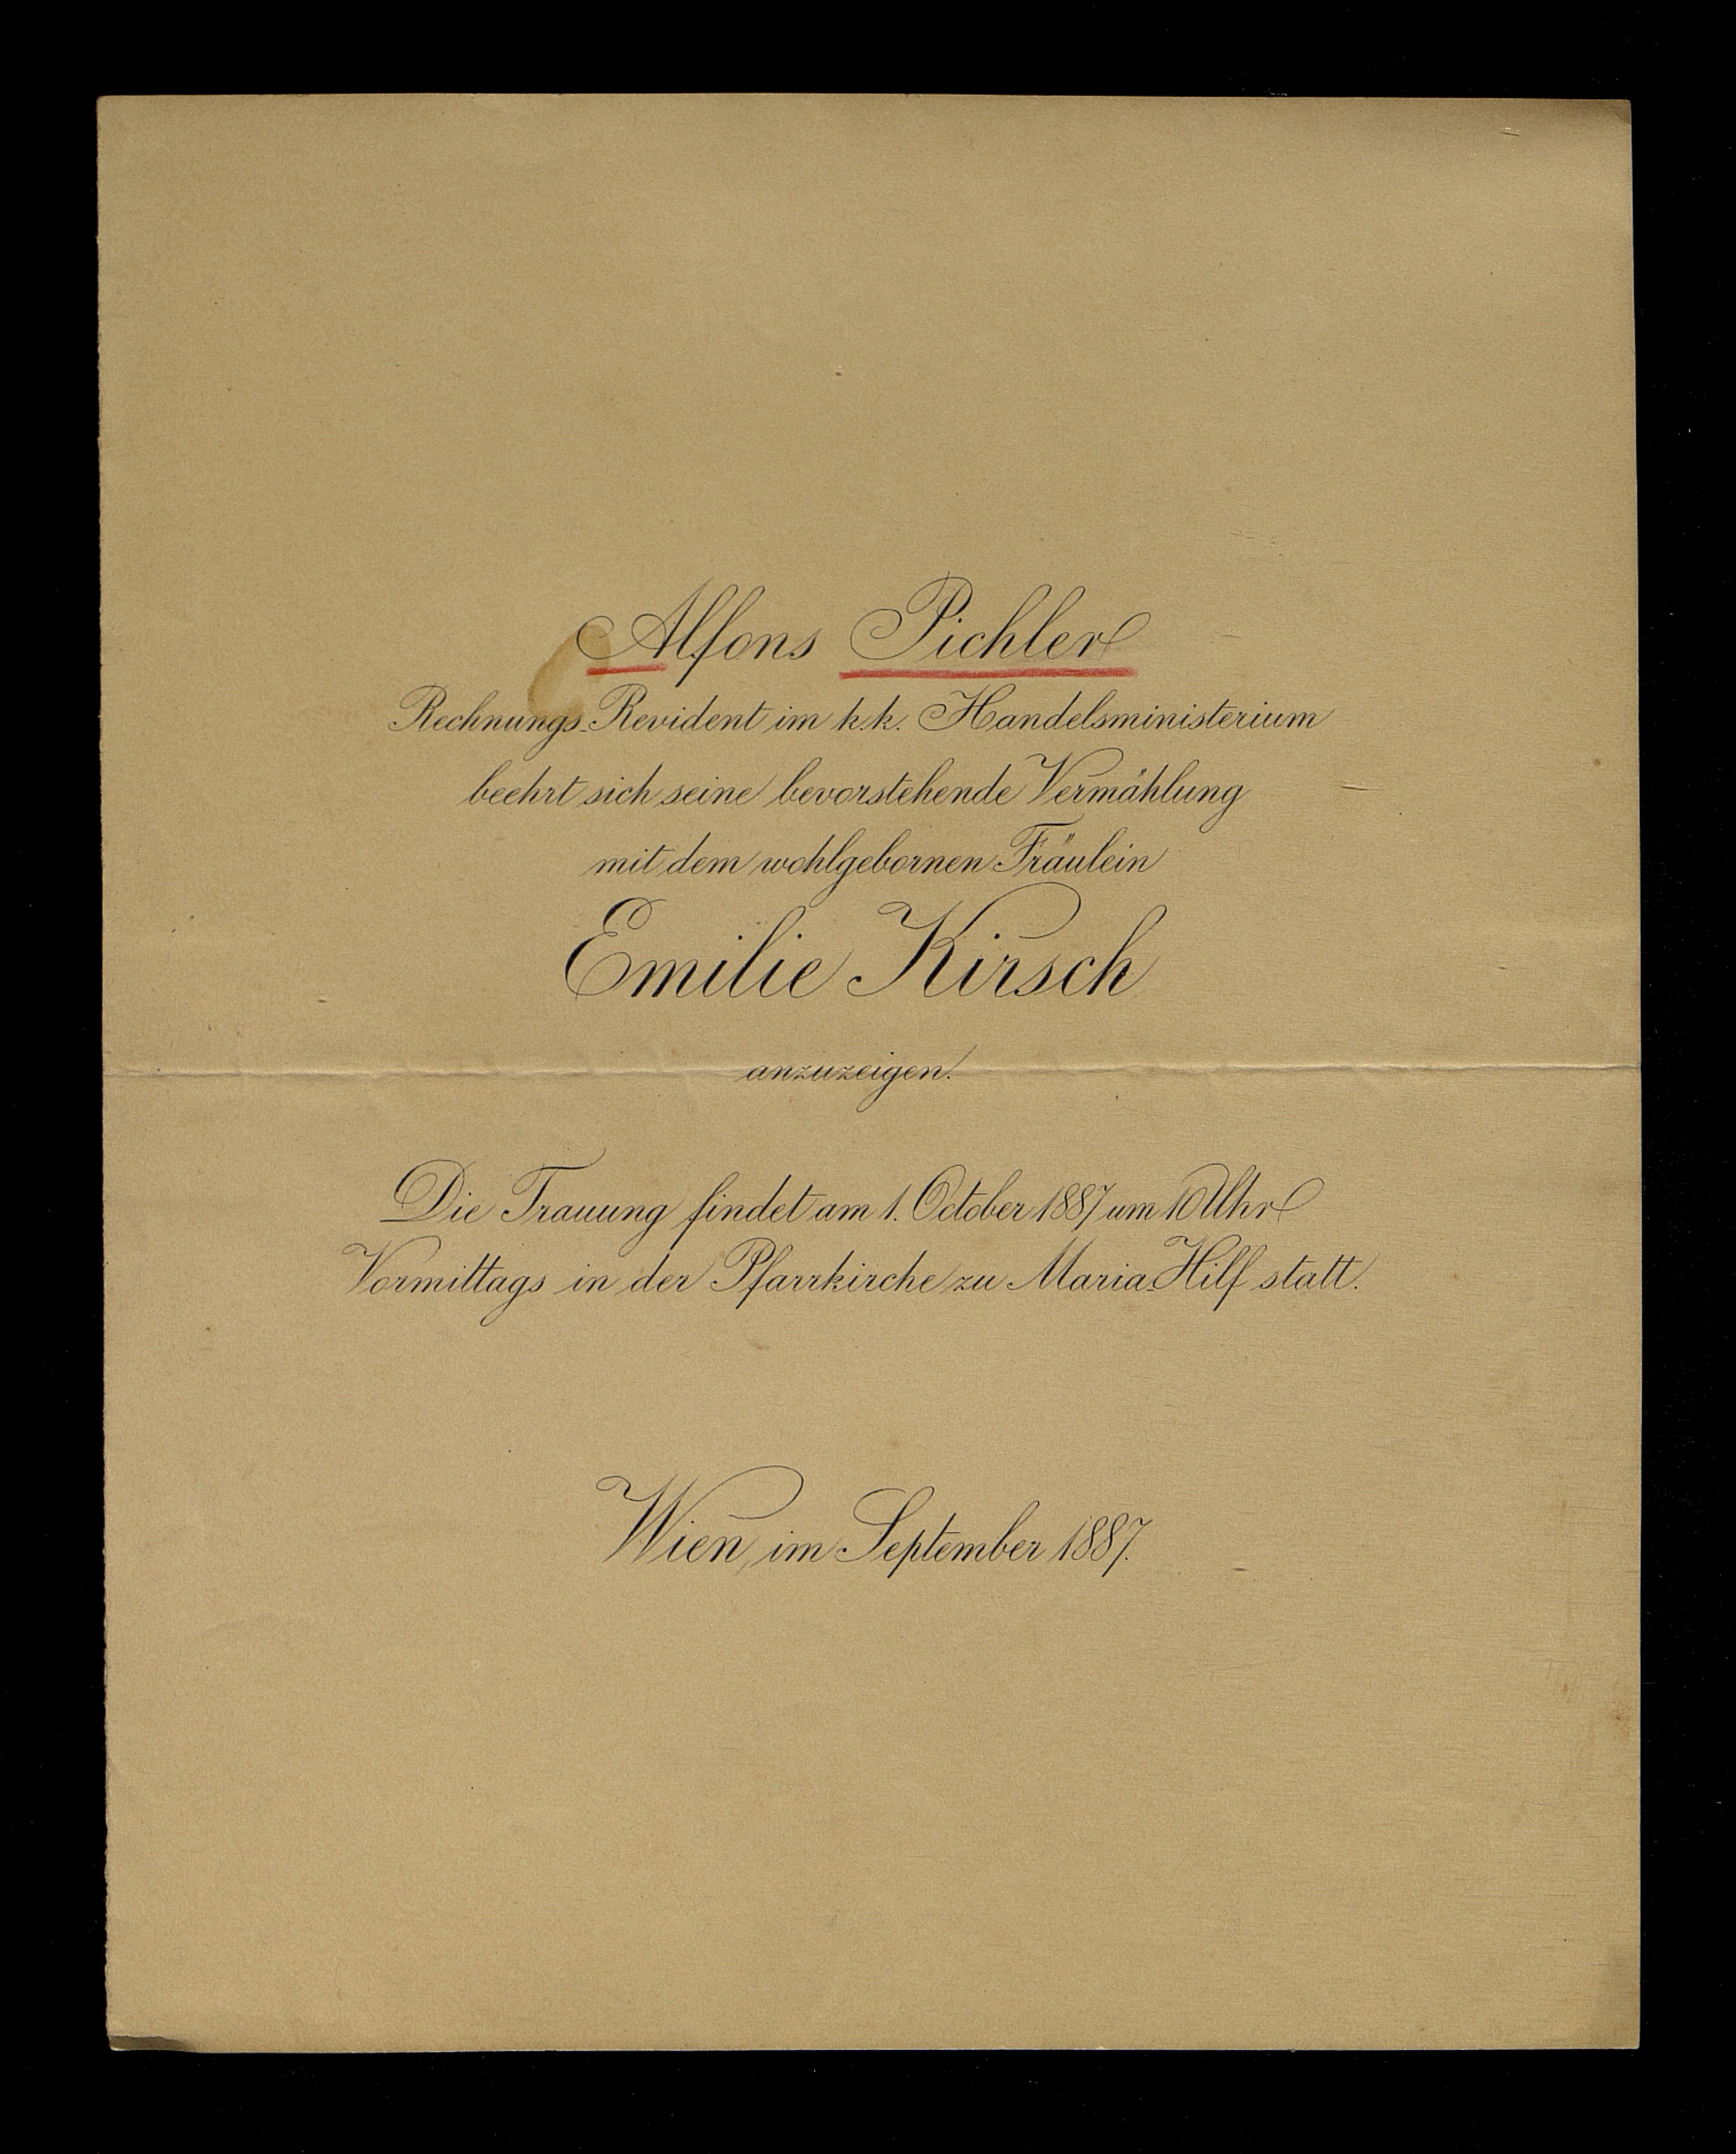 Alfons Pichler
Rechnungs-Revident im k.k. Handelsministerium
beehrt sich seine bevorstehende Vermählung
mit dem wohlgebornen Fräulein
Emilie Kirsch
anzuzeigen.
Die Trauung findet am 1. October 1887 um 10 Uhr
Vormittags in der Pfarrkirche zu Maria-Hilf statt.
Wien, im September 1887.